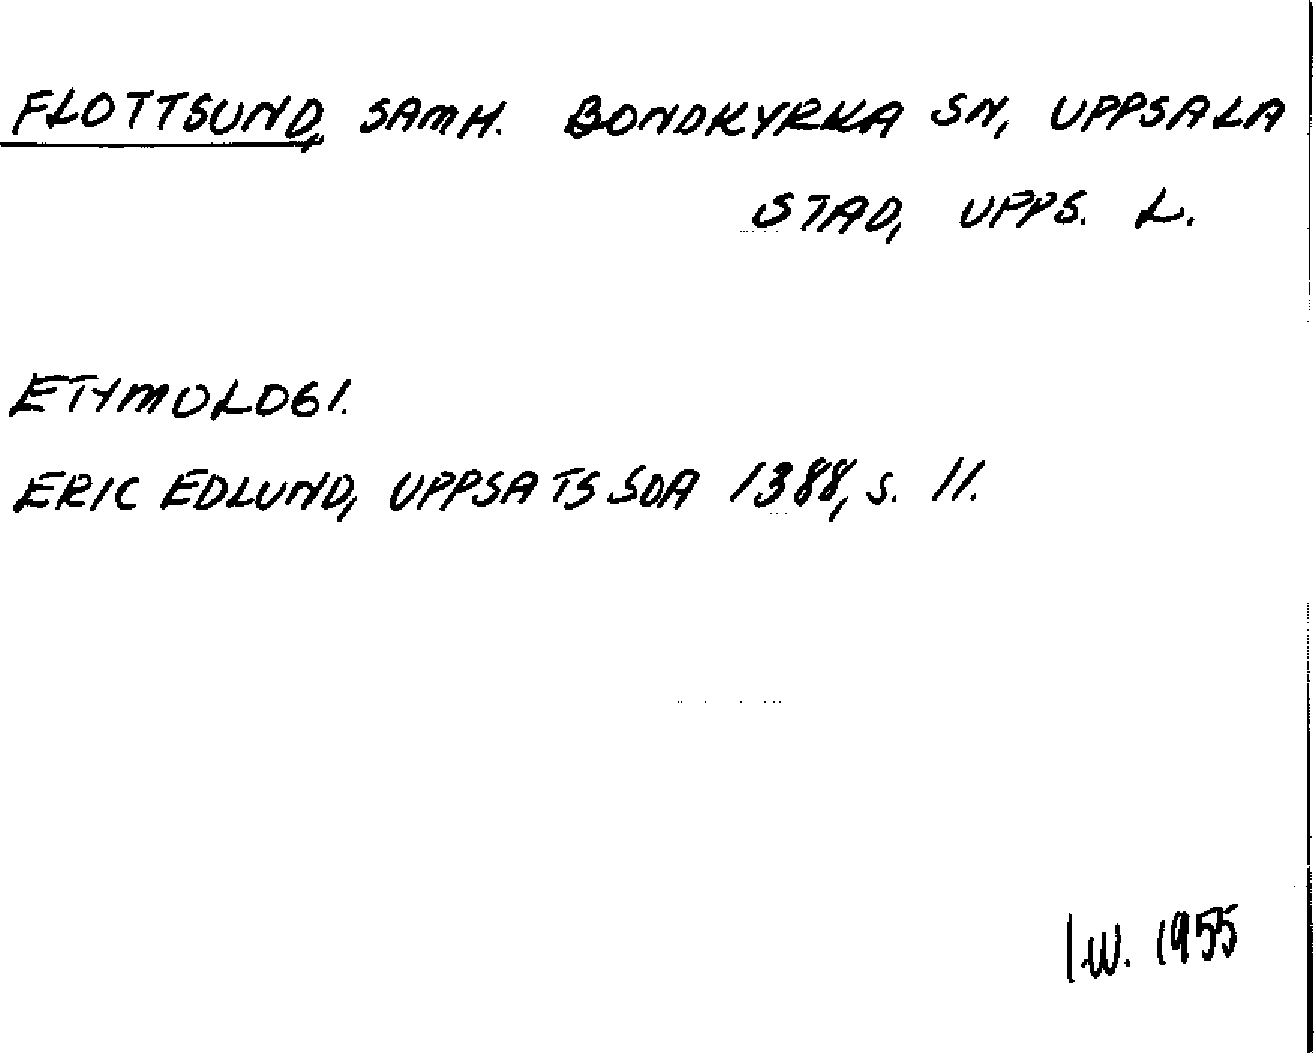 FLOTTSUND, SAMH. BONDKYRKA SN, UPPSALA
STAD, UPPS. L.
ETYMOLOGI.
ERIC EDLUND, UPPSATS SOA 1388, S. 11.
I.W. 1955